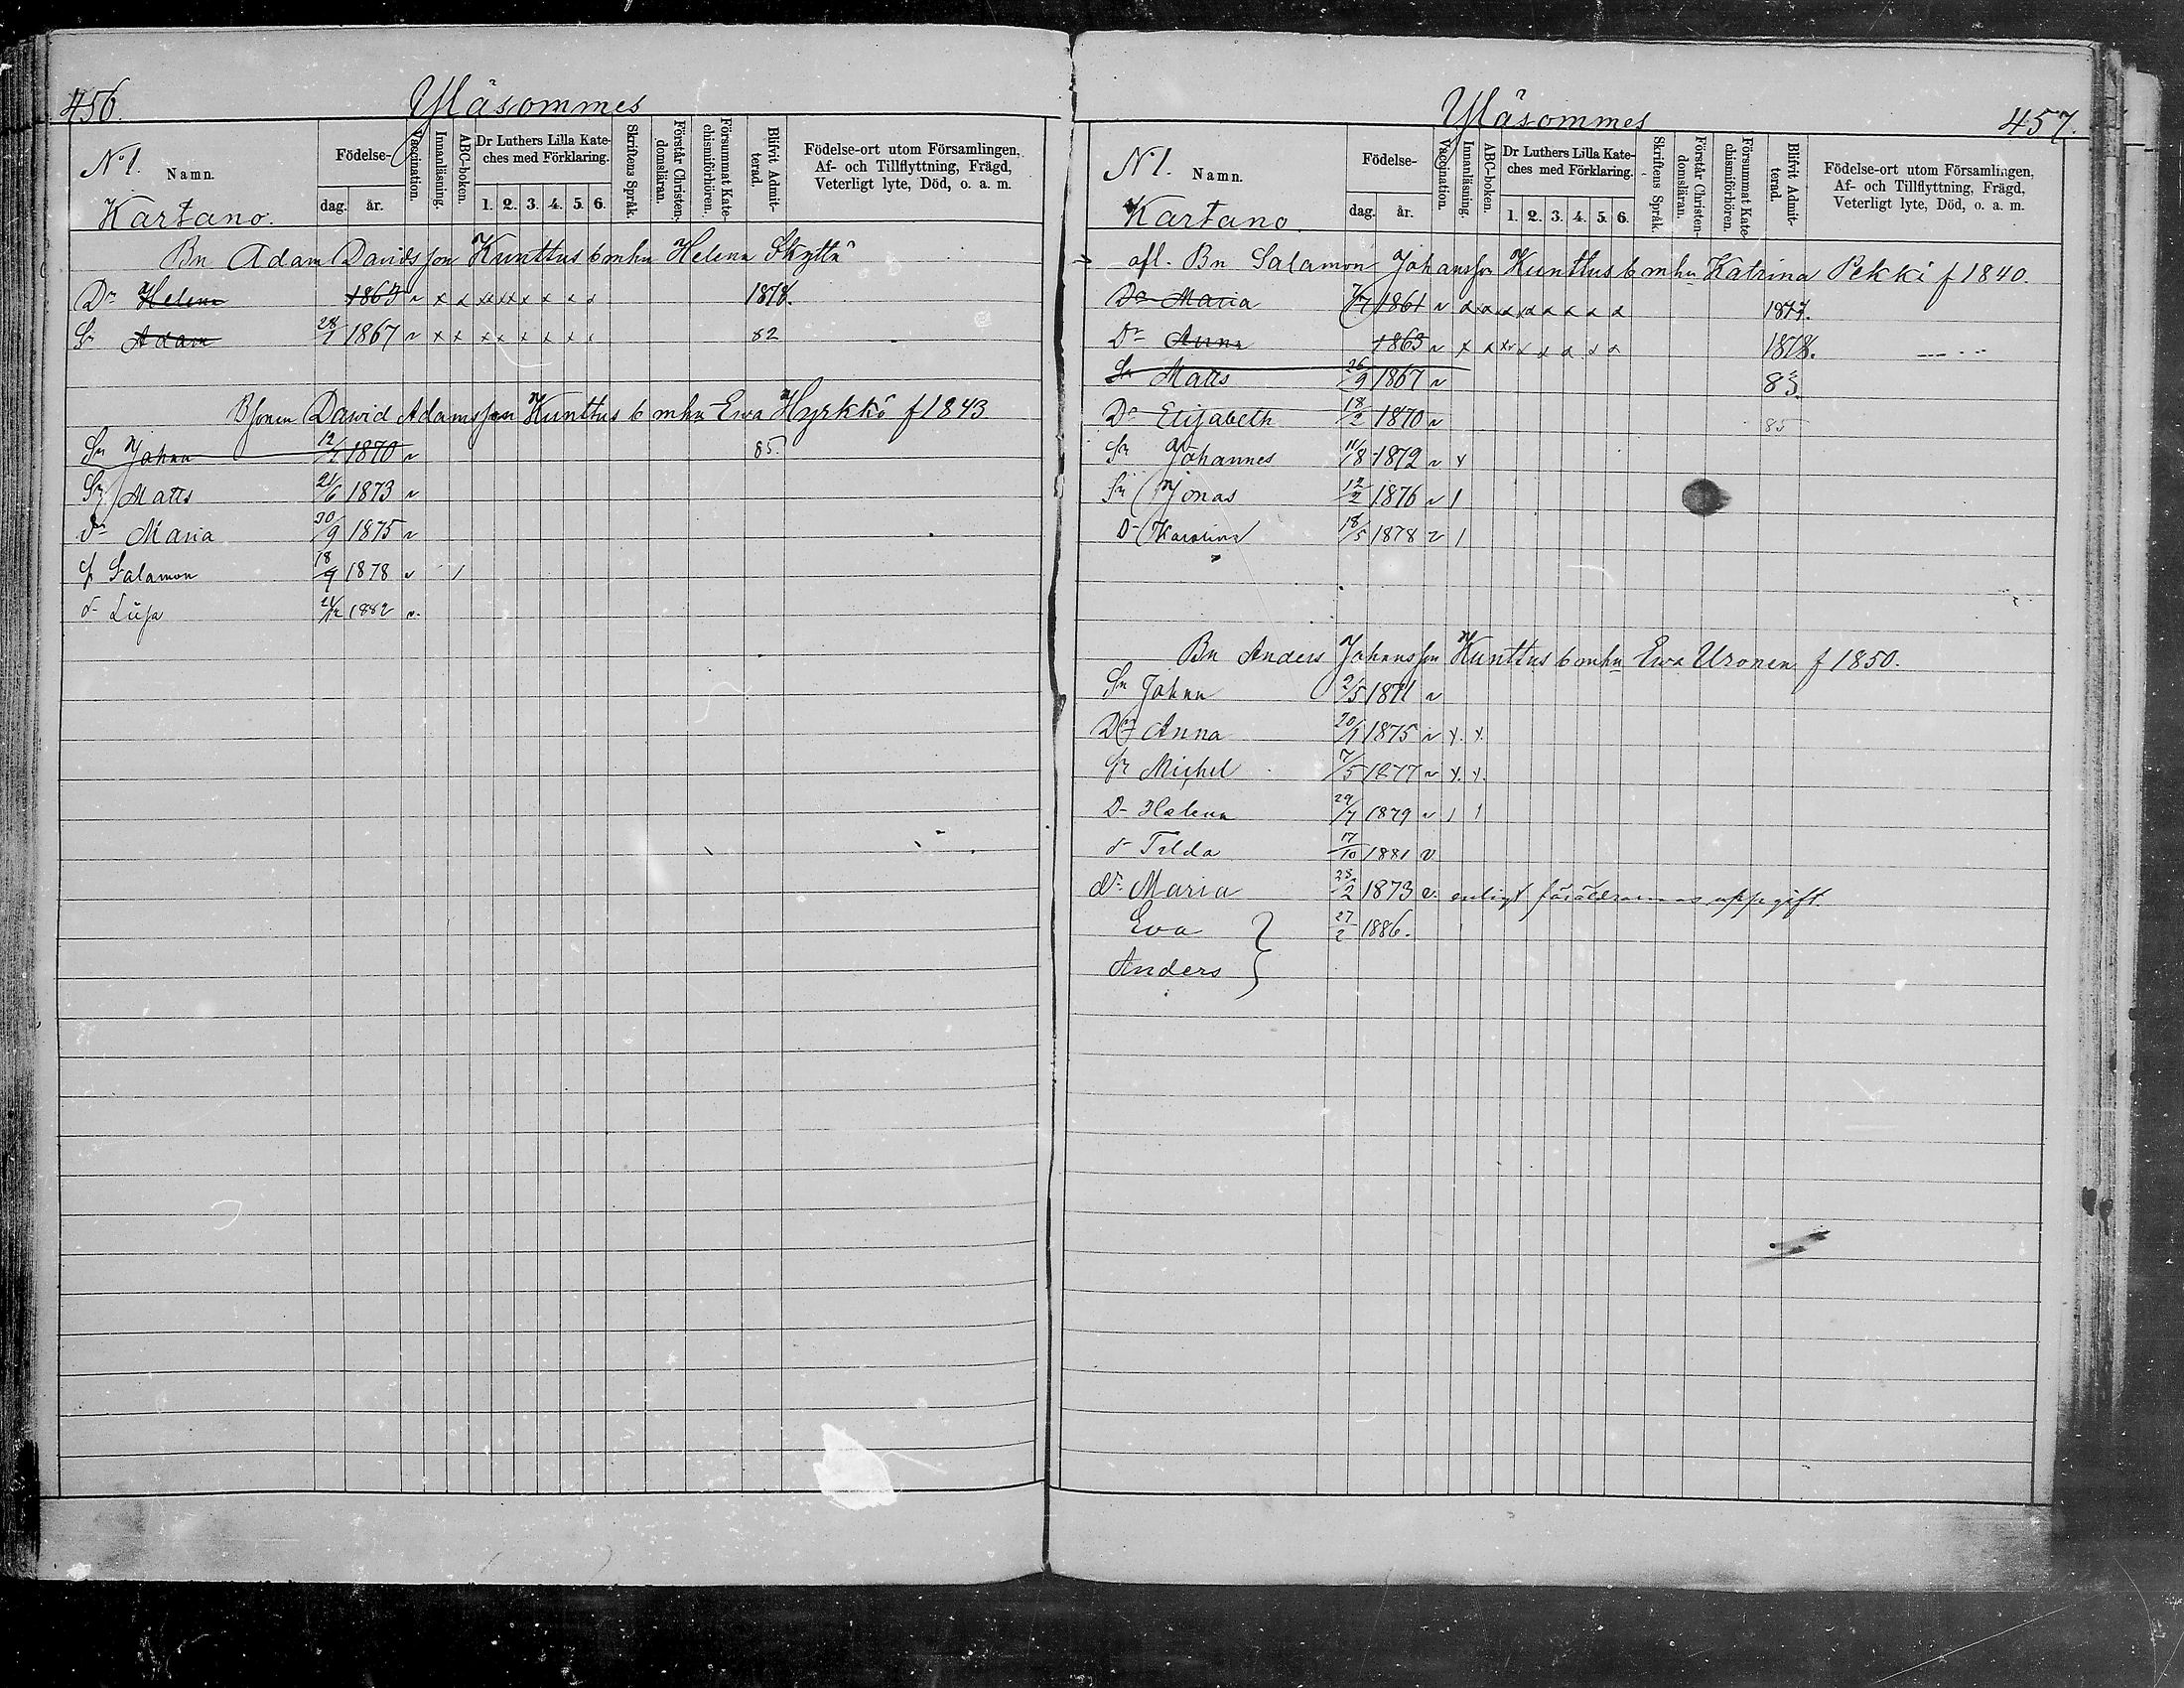 456.
Yläsommes
N:o 1.
Namn.
Födelse-
dag. år.
Vaccination.
Innanläsning.
ABC-boken.
Dr Luthers Lilla Kate-
ches med Förklaring.
1. 2. 3. 4. 5. 6.
Skriftens Språk.
Förstår Christen-
domsläran.
Försummat Kate-
chismiförhören.
Blifvit Admit-
terad.
Födelse-ort utom Församlingen,
Af- och Tillflyttning, Frägd,
Veterligt lyte, Död, o. a. m.
Kartano.
Bn Adam Davidsson Kunttus o mhu Helena Skyttä
Dr Helena 1863 v x x xx xx x x x x 1878.
Sn Adam 1867 v x x x x x x x x 82
Bsonen David Adamsson Kunttus o mhu Ewa Hyrkkö f 1843
Sn Johan 1870 v 85.
Sn Matts 21/6 1873 v
Dr Maria 30/9 1875 v
Sn Salamon 1878 v /
d Liisa 1882 v.
457.
Yläsommes
N:o 1.
Namn.
Födelse-
dag. år.
Vaccination.
Innanläsning.
ABC-boken.
Dr Luthers Lilla Kate-
ches med Förklaring.
1. 2. 3. 4. 5. 6.
Skriftens Språk.
Förstår Christen-
domsläran.
Försummat Kate-
chismiförhören.
Blifvit Admit-
terad.
Födelse-ort utom Församlingen,
Af- och Tillflyttning, Frägd,
Veterligt lyte, Död, o. a. m.
Kartano.
afl. Bn Salamon Johansson Kunttus o mhu Katrina Pekki f 1840.
Dr Maria 1861 v x x x x x x x x 1877.
Dr Anna 1863 v x x xx x x x x x 1878.
Sn Matts 26/9 1867 v 83.
Dr Elisabeth 18/2 1870 v 85
Sn Johannes 11/8 1872 v x
Sn Jonas 12/2 1876 v /
D Karolina 18/5 1878 v /
Bn Anders Johansson Kunttus o mhu Ewa Uronen f 1850.
Sn Johan 2/5 1871 v
Dr Anna 20/1 1875 v x. x.
Sn Michel 7/5 1877 v x. x.
D Helena 29/7 1879 v / /
d Tilda 17/10 1881 v
dr Maria 28/2 1873 v. enligt föräldrarnas uppgift.
Eva } 27/2 1886.
Anders }